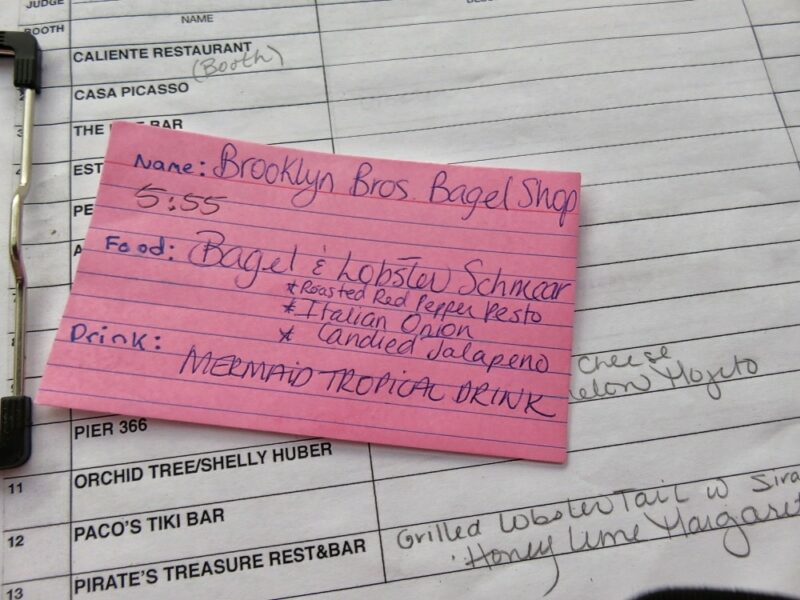 JUDGE
BOOTH
NAME
CALIENTE RESTAURANT
(Booth)
CASA PICASSO
3 THE BAR
4 EST
PE
A
Name: Brooklyn Bros. Bagel Shop
5:55
Food: Bagel & Lobster Schmear
* Roasted Red Pepper Pesto
* Italian Onion
* Candied Jalapeno
Drink: MERMAID TROPICAL DRINK
Cheese
Mojito
PIER 366
11 ORCHID TREE/SHELLY HUBER
12 PACO'S TIKI BAR
Grilled Lobster Tail w
Honey Lime
13 PIRATE'S TREASURE REST&BAR